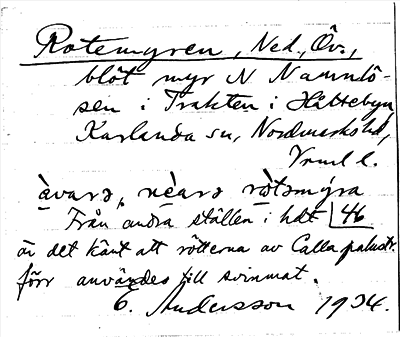 Rotemyren, Ned., Öv.,
blöt myr N Namnlö-
sen i Trakten i Håttebyn,
Karlanda sn, Nordmarks hd,
Vrml l.
àvarə, nèarə ròtəmýra
Från andra ställen i hdt 46
är det känt att rötterna av Calla palustr.
förr användes till svinmat.
E. Andersson 1934.